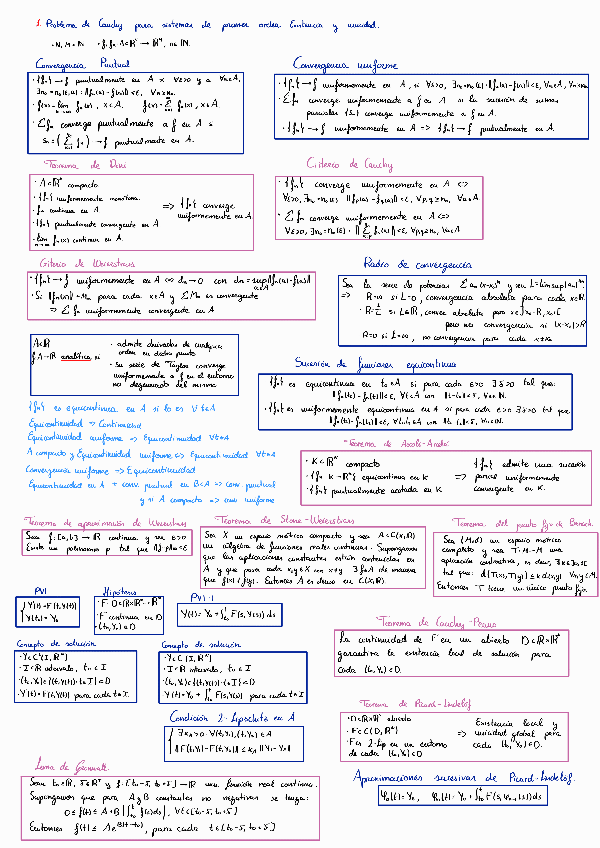 1. Problema de Cauchy para sistemas de primer orden. Existencia y unicidad.
· N, M ∈ ℕ · f, fₙ: A⊂ℝᴺ → ℝᴹ, n∈ℕ.
Convergencia Puntual
· {fₙ} → f puntualmente en A si ∀ε>0 y x ∀x∈A,
∃n₀=n₀(ε,x): ‖fₙ(x)-f(x)‖<ε, ∀n≥n₀.
· f(x)=lim fₙ(x), x∈A. f(x)=Σ fₙ(x), x∈A.
· Σfₙ converge puntualmente a f en A si
Sₙ=(Σ fₙ) → f puntualmente en A.
Convergencia uniforme
· {fₙ} → f uniformemente en A, si ∀ε>0, ∃n₀=n₀(ε): ‖fₙ(x)-f(x)‖<ε, ∀x∈A, ∀n≥n₀.
· Σfₙ converge uniformemente a f en A si la sucesión de sumas
parciales {Sₙ} converge uniformemente a f en A.
· {fₙ} → f uniformemente en A => {fₙ} → f puntualmente en A.
Teorema de Dini
· A⊂ℝᴺ compacto.
· {fₙ} uniformemente monótona.
· fₙ continua en A.
· {fₙ} puntualmente convergente en A
· lim fₙ(x) continua en A.
=> {fₙ} converge
uniformemente en A.
Criterio de Cauchy
· {fₙ} converge uniformemente en A <=>
∀ε>0, ∃n₀=n₀(ε): ‖fₚ(x)-f_q(x)‖<ε, ∀p,q≥n₀, ∀x∈A
· Σfₙ converge uniformemente en A <=>
∀ε>0, ∃n₀=n₀(ε): ‖Σ fₙ(x)‖<ε, ∀p,q≥n₀, ∀x∈A
Criterio de Weierstrass
· {fₙ} → f uniformemente en A <=> dₙ→0 con dₙ=sup‖fₙ(x)-f(x)‖
· Si ‖fₙ(x)‖≤Mₙ para cada x∈A y ΣMₙ es convergente
=> Σfₙ uniformemente convergente en A
Radio de convergencia
Sea la serie de potencias Σaₙ(x-x₀)ⁿ y sea L=lim sup|aₙ|^(1/n)
=> R=∞ si L=0, convergencia absoluta para cada x∈ℝ.
· R=1/L si L∈ℝ, conver. absoluta para x∈]x₀-R, x₀+R[
pero no convergencia si |x-x₀|>R
R=0 si L=∞, no convergencia para cada x≠x₀
A⊂ℝ
f: A→ℝ analítica si
· admite derivadas de cualquier
orden en dicho punto
· su serie de Taylor converge
uniformemente a f en el entorno
no degenerado del mismo
Sucesión de funciones equicontinua
· {fₙ} es equicontinua en t₀∈A si para cada ε>0 ∃δ>0 tal que:
‖fₙ(t)-fₙ(t₀)‖<ε, ∀t∈A con |t-t₀|<δ, ∀n∈ℕ.
· {fₙ} es uniformemente equicontinua en A si para cada ε>0 ∃δ>0 tal que
‖fₙ(t₁)-fₙ(t₂)‖<ε, ∀t₁,t₂∈A con |t₁-t₂|<δ, ∀n∈ℕ.
{fₙ} es equicontinua en A si lo es ∀t∈A
Equicontinuidad => Continuidad
Equicontinuidad uniforme => Equicontinuidad ∀t∈A
A compacto y Equicontinuidad uniforme <=> Equicontinuidad ∀t∈A
Convergencia uniforme => Equicontinuidad
Equicontinuidad en A + conv. puntual en B⊂A => conv. puntual
y si A compacto => conv. uniforme
Teorema de Ascoli-Arzelá
· K⊂ℝᴺ compacto
· {fₙ: K→ℝᴹ} equicontinua en K
· {fₙ} puntualmente acotada en K
=> {fₙ} admite una sucesión
parcial uniformemente
convergente en K.
Teorema de aproximación de Weierstrass
Sea f: [a,b] → ℝ continua y sea ε>0
Existe un polinomio p tal que ‖f-p‖∞<ε
Teorema de Stone-Weierstrass
Sea X un espacio métrico compacto y sea A⊂C(X,ℝ)
un álgebra de funciones reales continuas. Supongamos
que las aplicaciones constantes están contenidas en
A y que para cada x,y∈X con x≠y ∃f∈A de manera
que f(x)≠f(y). Entonces A es denso en C(X,ℝ)
Teorema del punto fijo de Banach.
Sea (M,d) un espacio métrico
completo y sea T: M→M una
aplicación contractiva, es decir, ∃k∈]0,1[
tal que: d(T(x),T(y))≤k d(x,y) ∀x,y∈M.
Entonces T tiene un único punto fijo.
PVI
Y'(t)=F(t,Y(t))
Y(t₀)=Y₀
Hipótesis
· F: D⊂ℝ×ℝᴺ→ℝᴺ
· F continua en D
· (t₀,Y₀)∈D
PVI-I
Y(t)=Y₀+∫ F(s,Y(s)) ds
Concepto de solución
· Y∈C¹(I,ℝᴺ)
· I⊂ℝ intervalo, t₀∈I
· (t₀,Y₀)∈{(t,Y(t)):t∈I}⊂D
· Y'(t)=F(t,Y(t)) para cada t∈I.
Concepto de solución
· Y∈C(I,ℝᴺ)
· I⊂ℝ intervalo, t₀∈I
· (t₀,Y₀)∈{(t,Y(t)):t∈I}⊂D
· Y(t)=Y₀+∫ F(s,Y(s)) para cada t∈I
Teorema de Cauchy-Peano
La continuidad de F en un abierto D⊂ℝ×ℝᴺ
garantiza la existencia local de solución para
cada (t₀,Y₀)∈D.
Condición 2-Lipschitz en A
∃K_A>0: ∀(t,Y₁),(t,Y₂)∈A
‖F(t,Y₁)-F(t,Y₂)‖≤K_A‖Y₁-Y₂‖
Teorema de Picard-Lindelöf
· D⊂ℝ×ℝᴺ abierto
· F∈C(D,ℝᴺ)
· F es 2-Lip en un entorno
de cada (t₀,Y₀)∈D
=> Existencia local y
unicidad global para
cada (t₀,Y₀)∈D.
Lema de Gronwall
Sean t₀∈ℝ, δ∈ℝ⁺ y f: [t₀-δ, t₀+δ]→ℝ una función real continua.
Supongamos que para A y B constantes no negativas se tenga:
0≤f(t)≤A+B|∫ f(s)ds|, ∀t∈[t₀-δ, t₀+δ]
Entonces f(t)≤Ae^(B|t-t₀|), para cada t∈[t₀-δ, t₀+δ]
Aproximaciones sucesivas de Picard-Lindelöf.
φ₀(t)=Y₀, φₙ(t)=Y₀+∫ F(s,φₙ₋₁(s)) ds